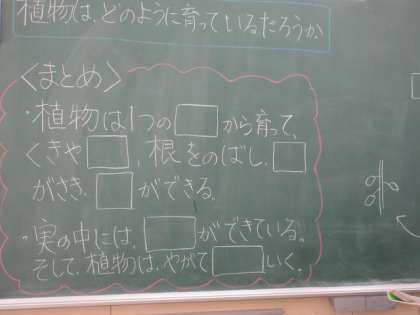 植物は、どのように育っているだろうか
〈まとめ〉
・植物は1つの□から育って、
くきや□、根をのばし、□
がさき、□ができる。
・実の中には、□ができている。
そして、植物は、やがて□いく。